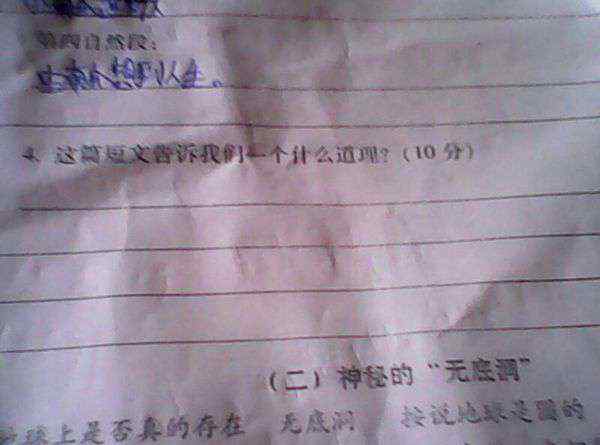 第四自然段：
由索人想到人生。
4. 这篇短文告诉我们一个什么道理？（10 分）
（二）神秘的“无底洞”
地球上是否真的存在 无底洞 按说地球是圆的